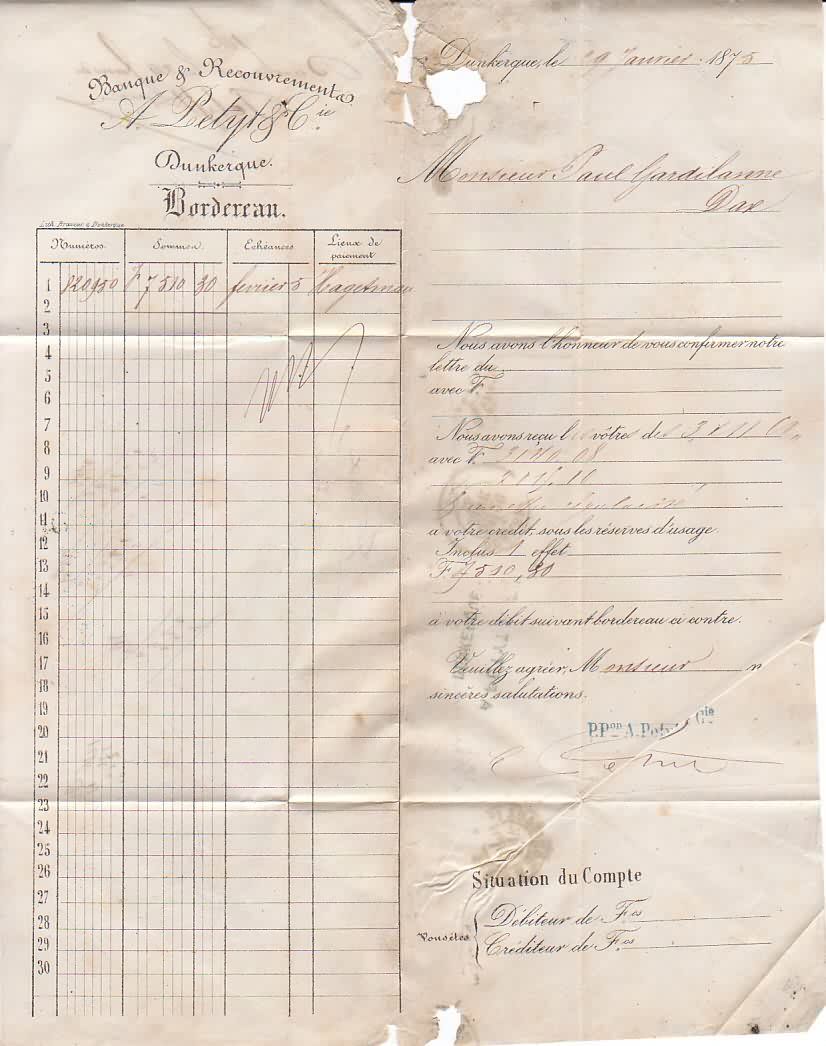 Banque & Recouvrements
A. Petyt & Cie
Dunkerque.
Bordereau.
Numéros. Sommes. Echéances Lieux de paiement
1 820950 F 7510 30 fevrier 5 Hagetmau
2
3
4
5
6
7
8
9
10
11
12
13
14
15
16
17
18
19
20
21
22
23
24
25
26
27
28
29
30
Dunkerque, le 9 Janvier 1875
Monsieur Paul Gardilanne
Dax
Nous avons l'honneur de vous confirmer notre
lettre du
avec F.
Nous avons reçu l vôtre de
avec F.
à votre crédit, sous les réserves d'usage.
Inclus 1 effet
F. 7510,30
à votre débit suivant bordereau ci contre.
Veuillez agréer, Monsieur
sincères salutations.
P.Pon A. Petyt Cie
Situation du Compte
Vous êtes
Débiteur de Fcs
Créditeur de Fcs